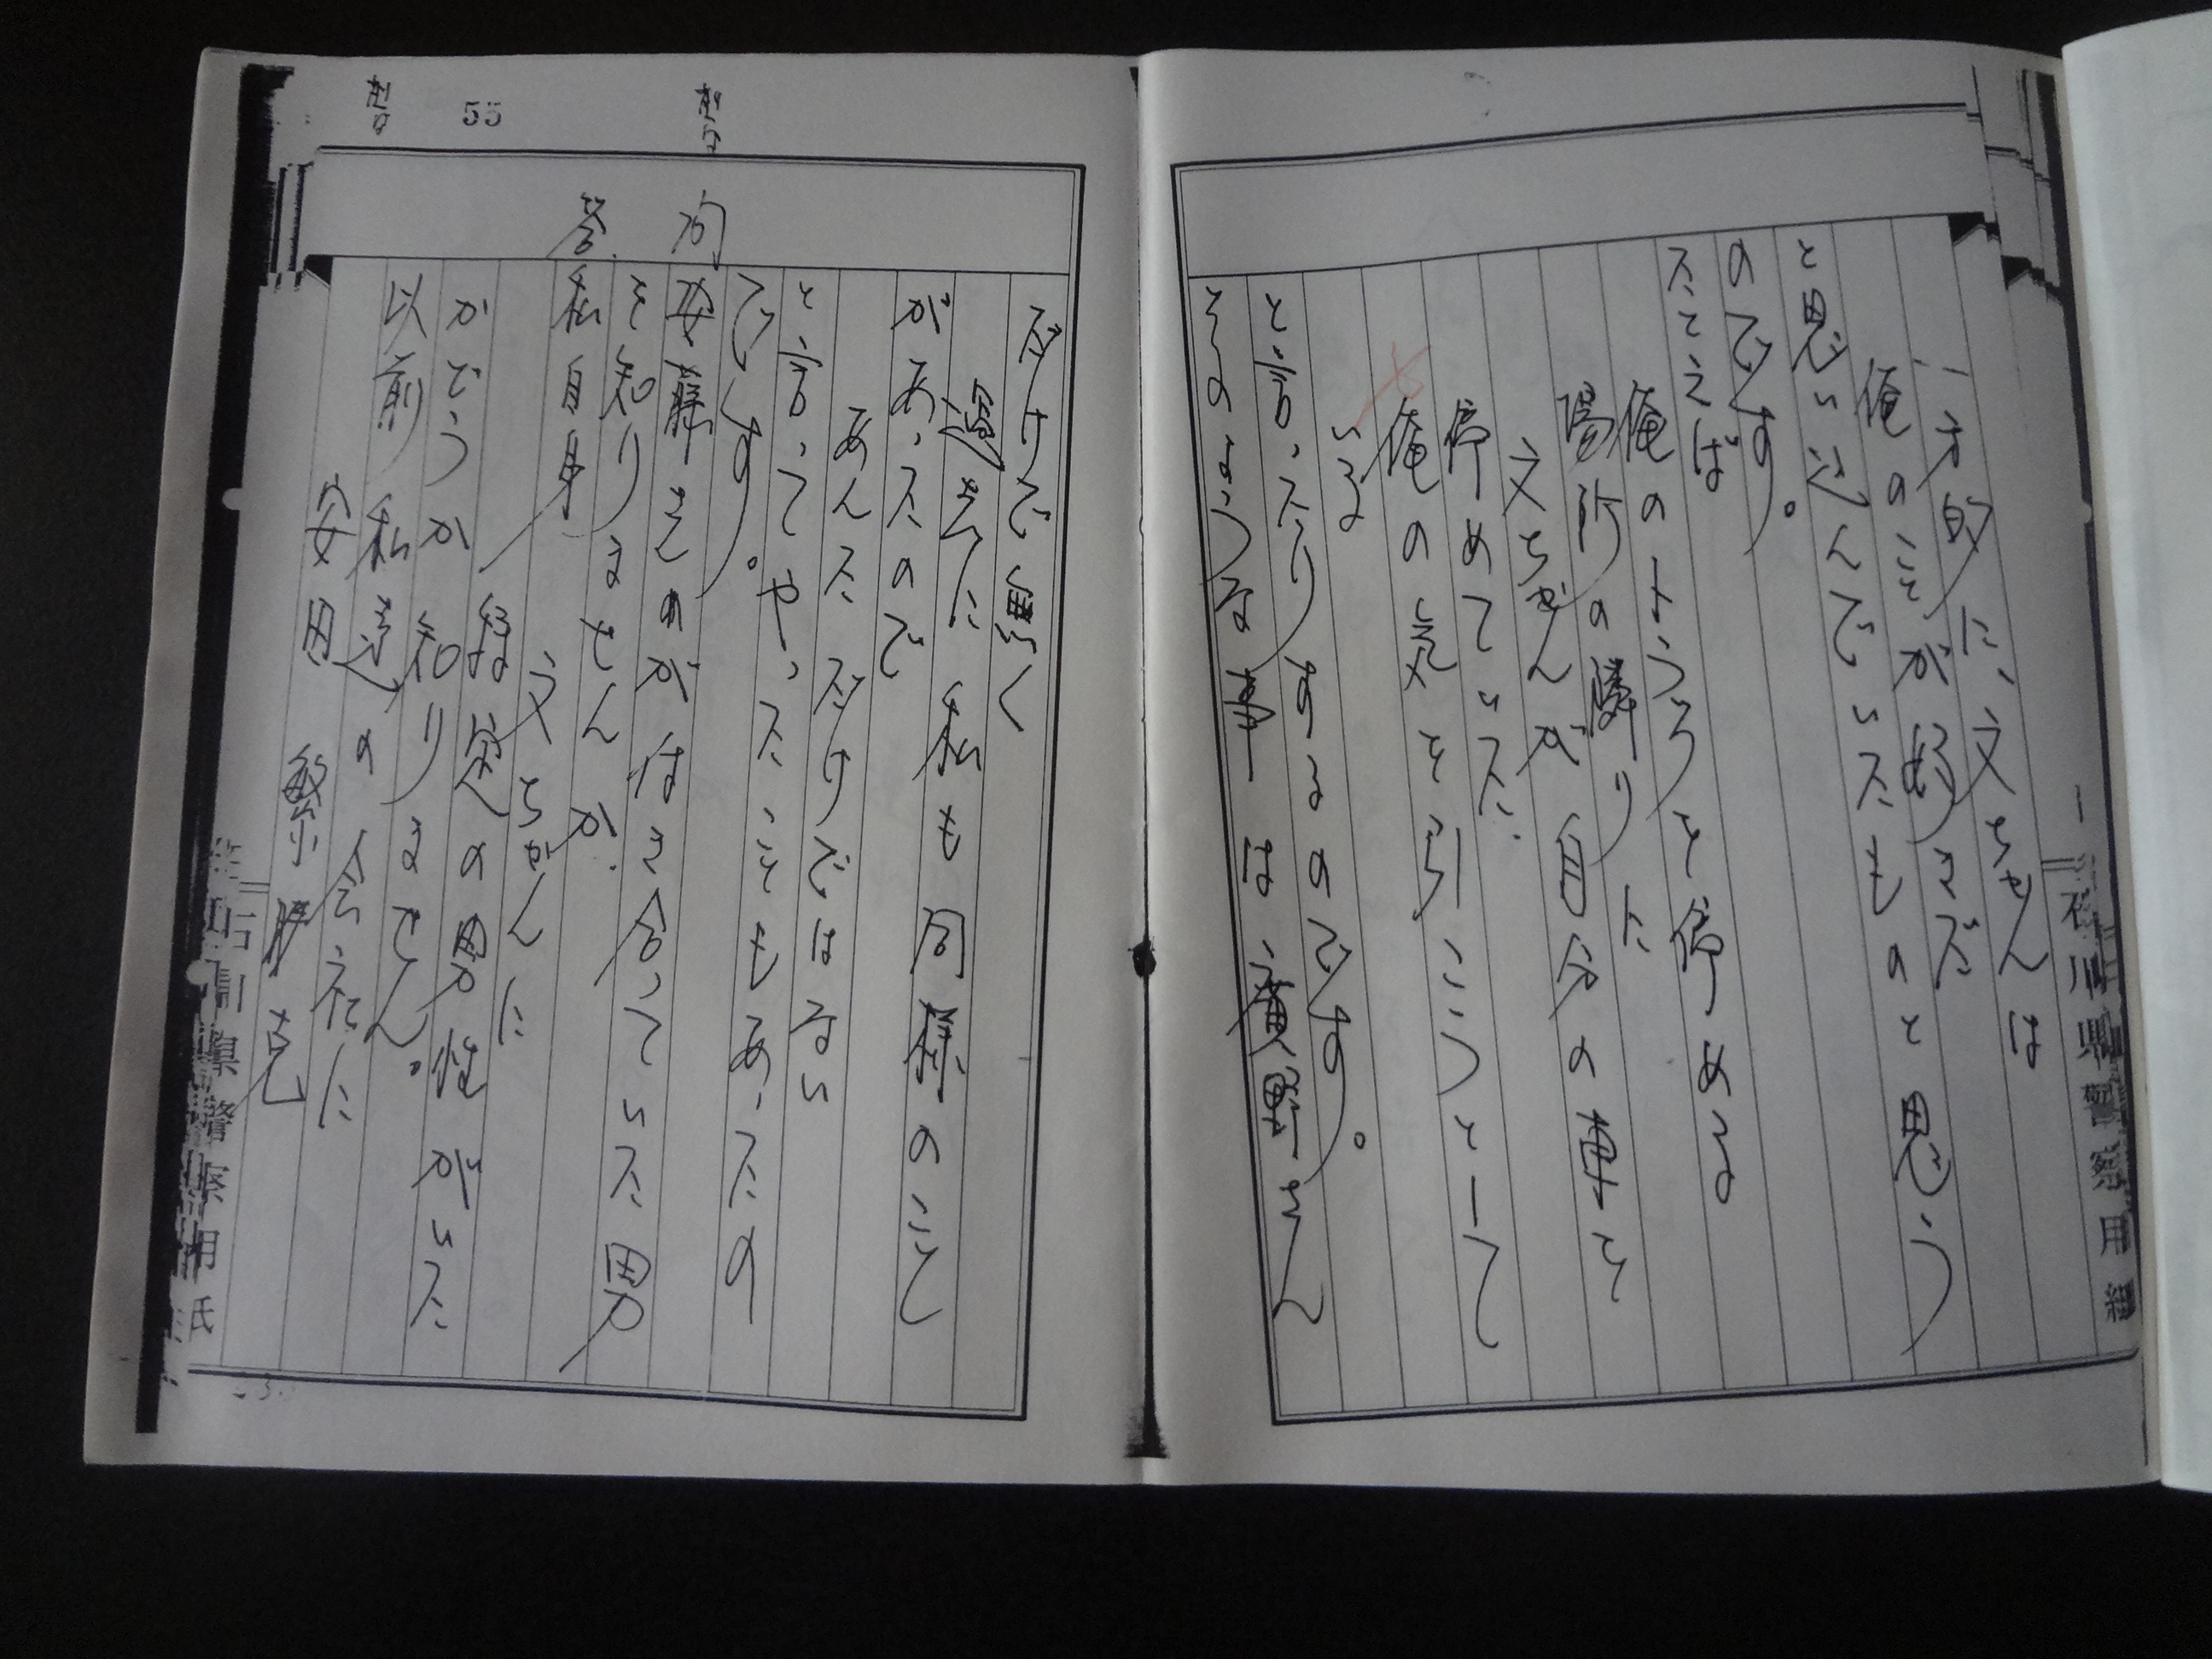 一方的に、文ちゃんは
俺のことが好きだ
と思い込んでいたものと思う
のです。
たとえば
俺のトラックを停める
場所の隣りに
文ちゃんが自分の車を
停めていた。
俺の気を引こうとして
いる
と言ったりするのです。
そのような事は海野さん
だけで無く
過去に私も同様のこと
があったので
あんただけではない
と言ってやったこともあったの
です。
問 安藤さのがはき合っていた男
を知りませんか。
答 私自身、文ちゃんに
特定の男性がいた
かどうか知りません。
以前私達の会社に
安田 繁勝 克
石川県警察用紙
石川県警察用紙
55